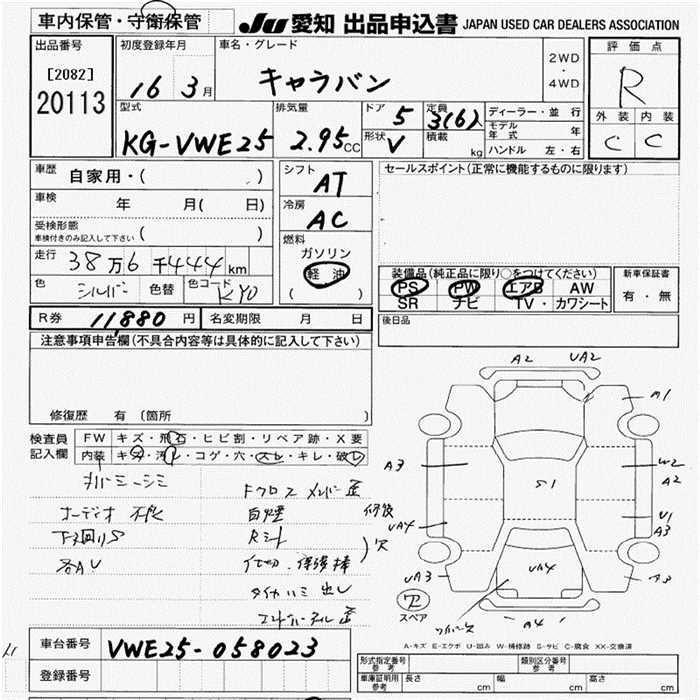 車内保管・守衛保管
JU 愛知 出品申込書 JAPAN USED CAR DEALERS ASSOCIATION
出品番号
[2082]
20113
初度登録年月
16 3月
車名・グレード
キャラバン
2WD
・
4WD
評価点
R
外装 内装
C C
型式
KG-VWE25
排気量
2.95CC
ドア 5
形状 V
定員 3(6)
積載 kg
ディーラー・並行
モデル年式 年
ハンドル 左・右
車歴
自家用・( )
車検
年 月( 日)
受検形態
車検付きのみ記入して下さい ( )
走行 38万6千444km
色 シルバー 色替 色コード KY0
シフト
AT
冷房
AC
燃料
ガソリン
軽油
( )
セールスポイント(正常に機能するものに限ります)
装備品(純正品に限り○をつけてください)
PS PW エアB AW
SR ナビ TV カワシート
新車保証書
有・無
R券 11,880円 名変期限 月 日
後日品
注意事項申告欄(不具合内容等は具体的に記入して下さい)
修復歴 有 (箇所 )
検査員
記入欄
FW キズ・飛石・ヒビ割・リペア跡・X要
内装 キズ・汚レ・コゲ・穴・スレ・キレ・破レ
Fクロスメンバー歪
オーディオ不良
下廻りS
各AU
A2 UA2
A1
A3
W2
A2
S1
U1
A3
UA4
UA3
UA4
A3
A4
ア
スペア
A-キズ E-エクボ U-凹み W-補修跡 S-サビ C-腐食 XX-交換済
車台番号 VWE25-058023
登録番号
形式指定番号
参考
類別区分番号
参考
車庫証明用
参考
長さ cm 幅 cm 高さ cm